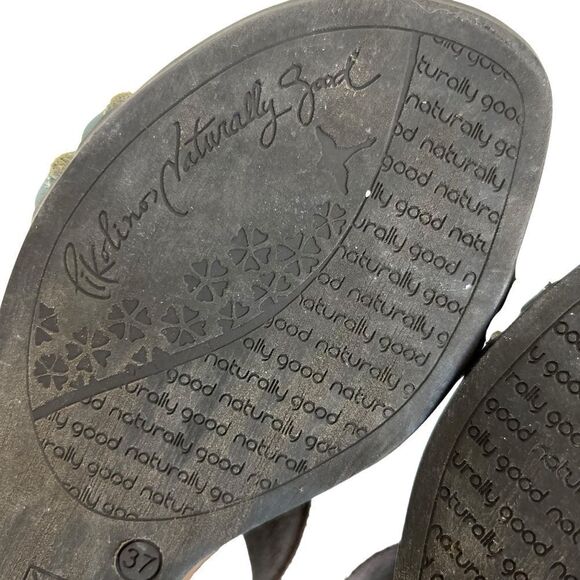 Pikolinos Naturally good
ally good
turally good
naturally good
good natura
ly good natu
rally good natu
naturally good
good naturally g
ally good naturally
good naturally good
naturally good natur
good naturally
naturally good
37
good
naturally good
rally good natu
good naturally
ally good natu
naturally good
good naturally
naturally good